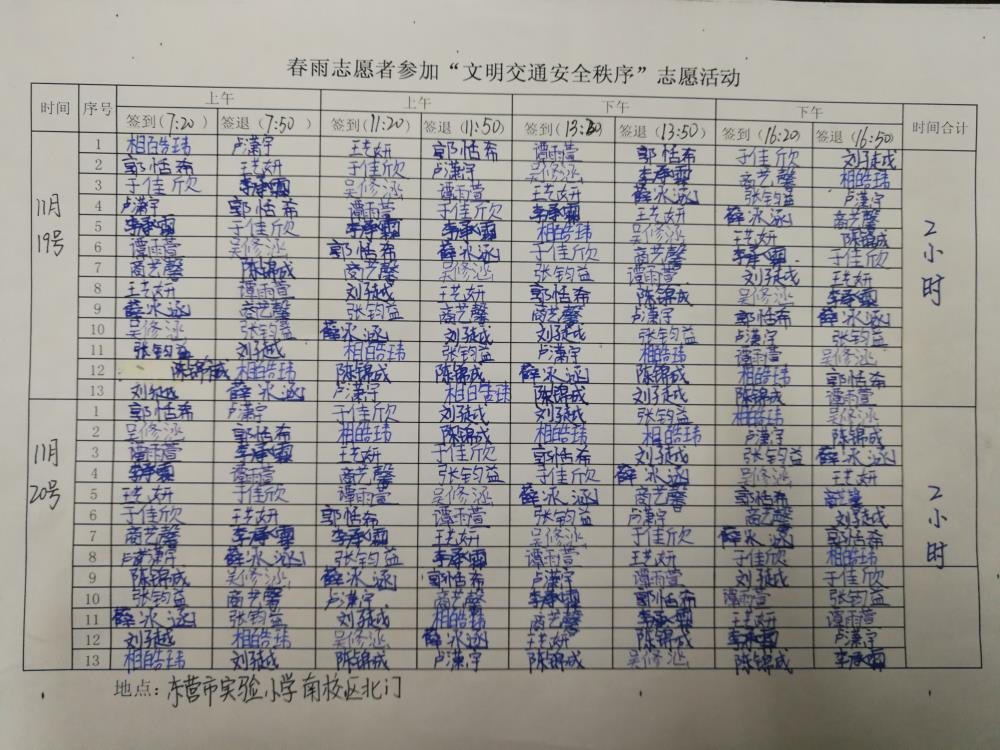 春雨志愿者参加“文明交通安全秩序”志愿活动
时间 序号 上午 上午 下午 下午 时间合计
签到(7:20) 签退(7:50) 签到(11:20) 签退(11:50) 签到(13:20) 签退(13:50) 签到(16:20) 签退(16:50)
11月19号 2小时
1 相皓玮 卢潇宇 王艺妍 郭恬希 谭雨萱 郭恬希 于佳欣 刘珏成
2 郭恬希 王艺妍 于佳欣 卢潇宇 吴修涵 李承霖 商艺馨 相皓玮
3 于佳欣 李承霖 吴修涵 谭雨萱 王艺妍 薛冰涵 张钧益 卢潇宇
4 卢潇宇 郭恬希 谭雨萱 于佳欣 李承霖 王艺妍 薛冰涵 商艺馨
5 李承霖 于佳欣 李承霖 李承霖 相皓玮 吴修涵 王艺妍 陈锦成
6 谭雨萱 吴修涵 郭恬希 薛冰涵 于佳欣 商艺馨 李承霖 于佳欣
7 商艺馨 陈锦成 商艺馨 吴修涵 张钧益 谭雨萱 刘珏成 王艺妍
8 王艺妍 谭雨萱 刘珏成 王艺妍 郭恬希 陈锦成 吴修涵 李承霖
9 薛冰涵 商艺馨 张钧益 商艺馨 商艺馨 卢潇宇 郭恬希 薛冰涵
10 吴修涵 张钧益 薛冰涵 刘珏成 刘珏成 张钧益 卢潇宇 张钧益
11 张钧益 刘珏成 相皓玮 张钧益 卢潇宇 相皓玮 谭雨萱 吴修涵
12 陈锦成 相皓玮 陈锦成 陈锦成 薛冰涵 陈锦成 相皓玮 郭恬希
13 刘珏成 薛冰涵 卢潇宇 相皓玮 陈锦成 刘珏成 陈锦成 谭雨萱
11月20号 2小时
1 郭恬希 卢潇宇 于佳欣 刘珏成 刘珏成 张钧益 相皓玮 吴修涵
2 吴修涵 郭恬希 相皓玮 陈锦成 相皓玮 相皓玮 卢潇宇 陈锦成
3 谭雨萱 李承霖 王艺妍 于佳欣 郭恬希 刘珏成 张钧益 薛冰涵
4 李承霖 谭雨萱 商艺馨 张钧益 于佳欣 薛冰涵 吴修涵 王艺妍
5 王艺妍 于佳欣 谭雨萱 吴修涵 薛冰涵 商艺馨 郭恬希
6 于佳欣 王艺妍 郭恬希 谭雨萱 张钧益 卢潇宇 商艺馨 刘珏成
7 商艺馨 李承霖 李承霖 王艺妍 吴修涵 于佳欣 薛冰涵 郭恬希
8 卢潇宇 薛冰涵 张钧益 李承霖 谭雨萱 王艺妍 于佳欣 相皓玮
9 陈锦成 吴修涵 薛冰涵 郭恬希 卢潇宇 谭雨萱 刘珏成 于佳欣
10 张钧益 商艺馨 卢潇宇 商艺馨 李承霖 郭恬希 谭雨萱 张钧益
11 薛冰涵 张钧益 刘珏成 相皓玮 商艺馨 李承霖 王艺妍 谭雨萱
12 刘珏成 相皓玮 吴修涵 薛冰涵 王艺妍 陈锦成 李承霖 卢潇宇
13 相皓玮 刘珏成 陈锦成 卢潇宇 陈锦成 吴修涵 陈锦成 李承霖
地点：东营市实验小学南校区北门